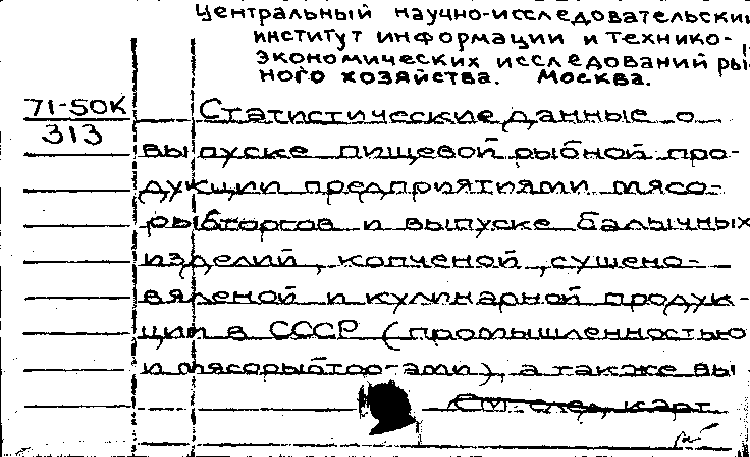 Центральный научно-исследовательский
институт информации и технико-
экономических исследований рыб
ного хозяйства. Москва.
71-50К
313
Статистические данные о
выпуске пищевой рыбной про-
дукции предприятиями мясо-
рыбторгов и выпуске балычных
изделий, копченой, сушено-
вяленой и кулинарной продук-
ции в СССР (промышленностью
и мясорыбторгами), а также вы
См. след. карт.